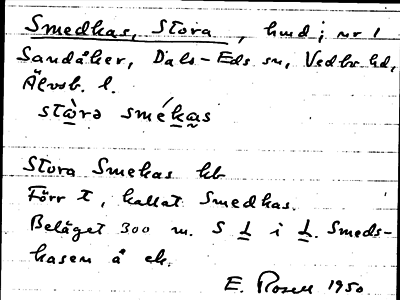 Smedkas, Stora, hmd i nr 1
Sandåker, Dals-Eds sn, Vedbo hd,
Älvsb. l.
stὰrə smékas
Stora Smekas kb
Förr t, kallat Smedkas.
Beläget 300 m. S L i L. Smeds-
kasen å ek.
E. Rosell 1950